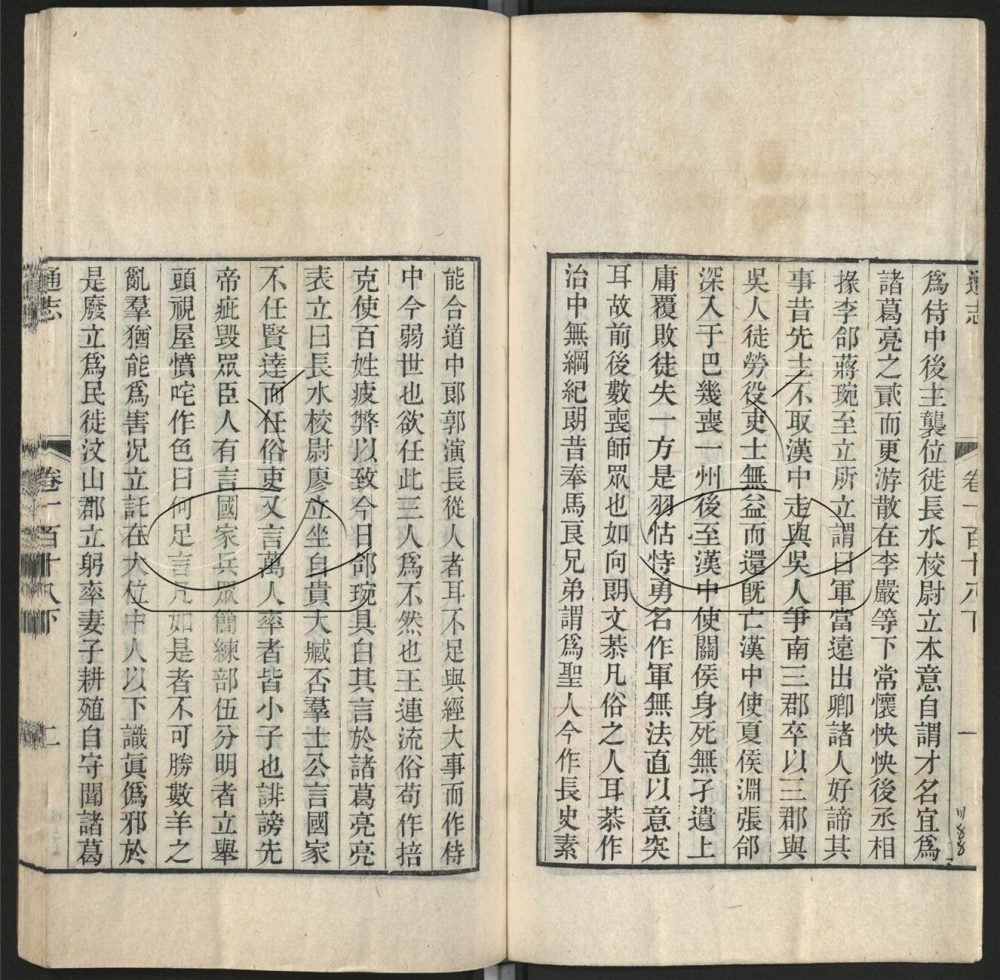 通志
卷一百十八下
一
爲侍中後主襲位徙長水校尉立本意自謂才名宜爲
諸葛亮之貳而更游散在李嚴等下常懷怏怏後丞相
掾李郃蔣琬至立所立謂曰軍當遠出卿諸人好諦其
事昔先主不取漢中走與吳人爭南三郡卒以三郡與
吳人徒勞役吏士無益而還旣亡漢中使夏侯淵張郃
深入于巴幾喪一州後至漢中使關侯身死無孑遺上
庸覆敗徒失一方是羽怙恃勇名作軍無法直以意突
耳故前後數喪師眾也如向朗文恭凡俗之人耳恭作
治中無綱紀朗昔奉馬良兄弟謂爲聖人今作長史素
能合道中郞郭演長從人者耳不足與經大事而作侍
中今弱世也欲任此三人爲不然也王連流俗苟作掊
克使百姓疲弊以致今日郃琬具白其言於諸葛亮亮
表立曰長水校尉廖立坐自貴大臧否羣士公言國家
不任賢達而任俗吏又言萬人率者皆小子也誹謗先
帝疵毀眾臣人有言國家兵眾簡練部伍分明者立舉
頭視屋憤咤作色曰何足言凡如是者不可勝數羊之
亂羣猶能爲害況立託在大位中人以下識眞僞邪於
是廢立爲民徙汶山郡立躬率妻子耕殖自守聞諸葛
通志
卷一百十八下
二